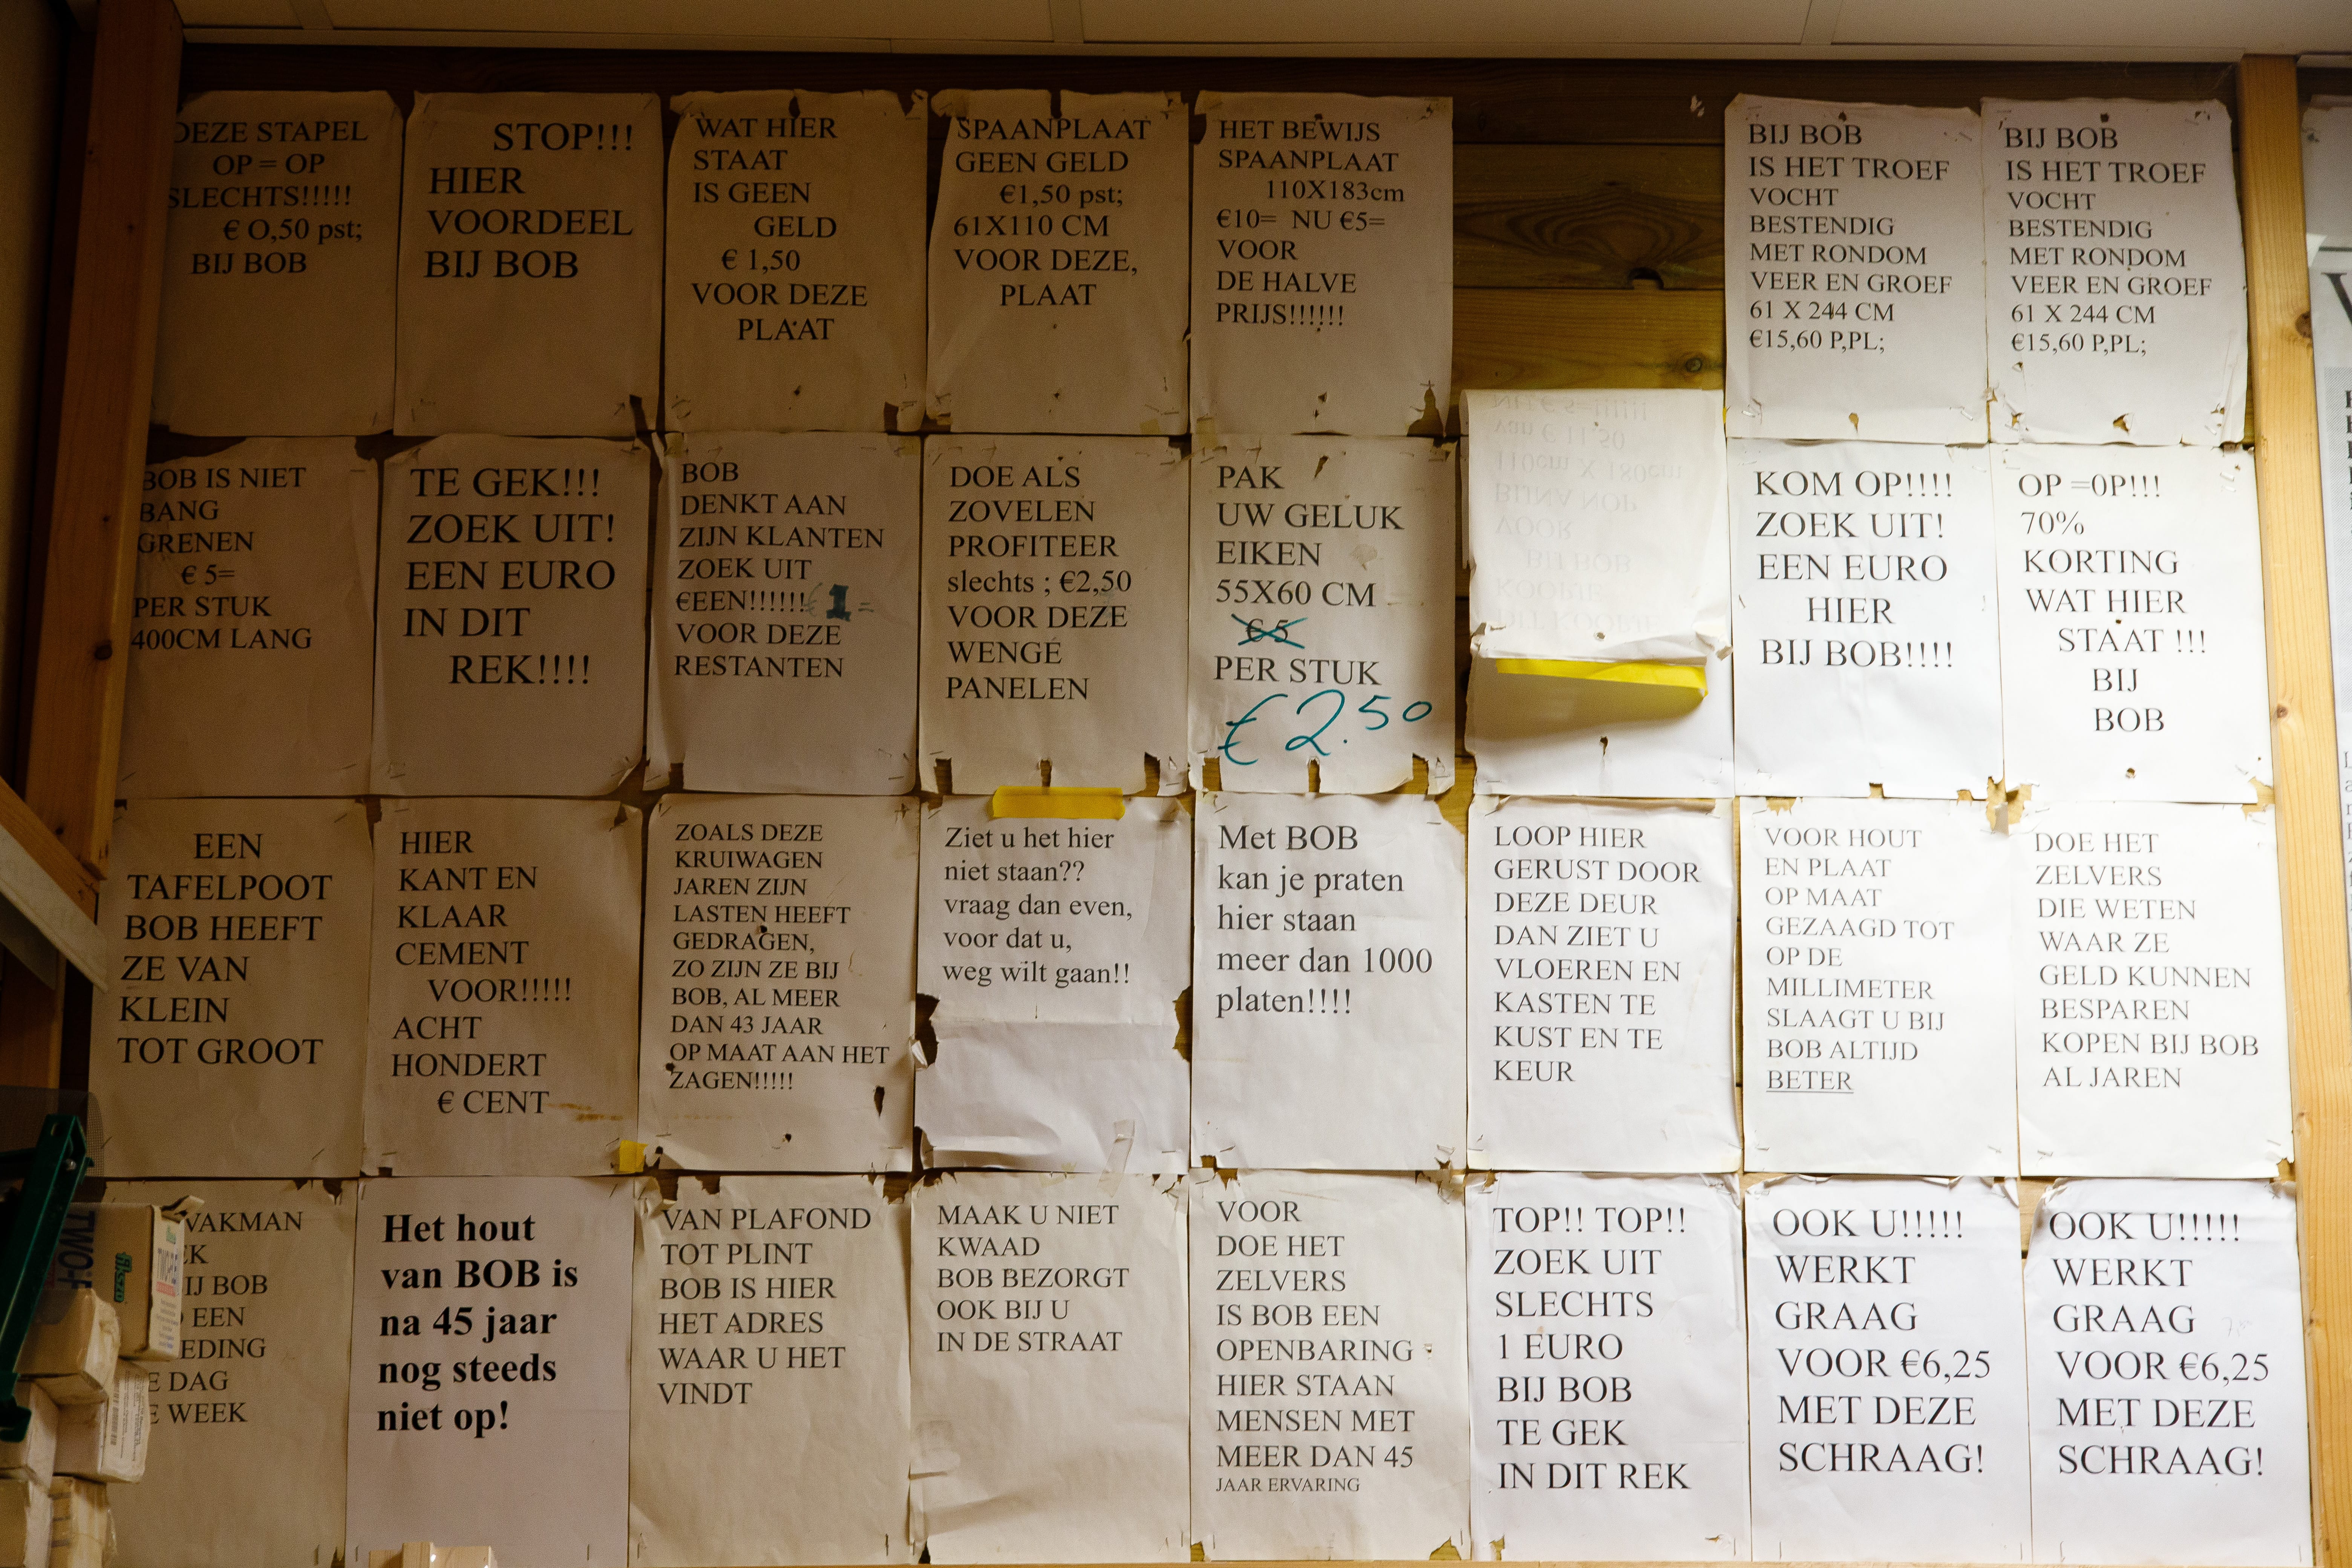 DEZE STAPEL
OP = OP
SLECHTS!!!!!
€ O,50 pst;
BIJ BOB
STOP!!!
HIER
VOORDEEL
BIJ BOB
WAT HIER
STAAT
IS GEEN
GELD
€ 1,50
VOOR DEZE
PLAAT
SPAANPLAAT
GEEN GELD
€1,50 pst;
61X110 CM
VOOR DEZE,
PLAAT
HET BEWIJS
SPAANPLAAT
110X183cm
€10= NU €5=
VOOR
DE HALVE
PRIJS!!!!!!
BIJ BOB
IS HET TROEF
VOCHT
BESTENDIG
MET RONDOM
VEER EN GROEF
61 X 244 CM
€15,60 P,PL;
BIJ BOB
IS HET TROEF
VOCHT
BESTENDIG
MET RONDOM
VEER EN GROEF
61 X 244 CM
€15,60 P,PL;
BOB IS NIET
BANG
GRENEN
€ 5=
PER STUK
400CM LANG
TE GEK!!!
ZOEK UIT!
EEN EURO
IN DIT
REK!!!!
BOB
DENKT AAN
ZIJN KLANTEN
ZOEK UIT
€EEN!!!!!! € 1=
VOOR DEZE
RESTANTEN
DOE ALS
ZOVELEN
PROFITEER
slechts ; €2,50
VOOR DEZE
WENGÉ
PANELEN
PAK
UW GELUK
EIKEN
55X60 CM
€ 5
PER STUK
€ 2.50
KOM OP!!!!
ZOEK UIT!
EEN EURO
HIER
BIJ BOB!!!!
OP =0P!!!
70%
KORTING
WAT HIER
STAAT !!!
BIJ
BOB
EEN
TAFELPOOT
BOB HEEFT
ZE VAN
KLEIN
TOT GROOT
HIER
KANT EN
KLAAR
CEMENT
VOOR!!!!!
ACHT
HONDERT
€ CENT
ZOALS DEZE
KRUIWAGEN
JAREN ZIJN
LASTEN HEEFT
GEDRAGEN,
ZO ZIJN ZE BIJ
BOB, AL MEER
DAN 43 JAAR
OP MAAT AAN HET
ZAGEN!!!!!
Ziet u het hier
niet staan??
vraag dan even,
voor dat u,
weg wilt gaan!!
Met BOB
kan je praten
hier staan
meer dan 1000
platen!!!!
LOOP HIER
GERUST DOOR
DEZE DEUR
DAN ZIET U
VLOEREN EN
KASTEN TE
KUST EN TE
KEUR
VOOR HOUT
EN PLAAT
OP MAAT
GEZAAGD TOT
OP DE
MILLIMETER
SLAAGT U BIJ
BOB ALTIJD
BETER
DOE HET
ZELVERS
DIE WETEN
WAAR ZE
GELD KUNNEN
BESPAREN
KOPEN BIJ BOB
AL JAREN
VAKMAN
BOB
EEN
DAG
WEEK
Het hout
van BOB is
na 45 jaar
nog steeds
niet op!
VAN PLAFOND
TOT PLINT
BOB IS HIER
HET ADRES
WAAR U HET
VINDT
MAAK U NIET
KWAAD
BOB BEZORGT
OOK BIJ U
IN DE STRAAT
VOOR
DOE HET
ZELVERS
IS BOB EEN
OPENBARING
HIER STAAN
MENSEN MET
MEER DAN 45
JAAR ERVARING
TOP!! TOP!!
ZOEK UIT
SLECHTS
1 EURO
BIJ BOB
TE GEK
IN DIT REK
OOK U!!!!!
WERKT
GRAAG
VOOR €6,25
MET DEZE
SCHRAAG!
OOK U!!!!!
WERKT
GRAAG
VOOR €6,25
MET DEZE
SCHRAAG!